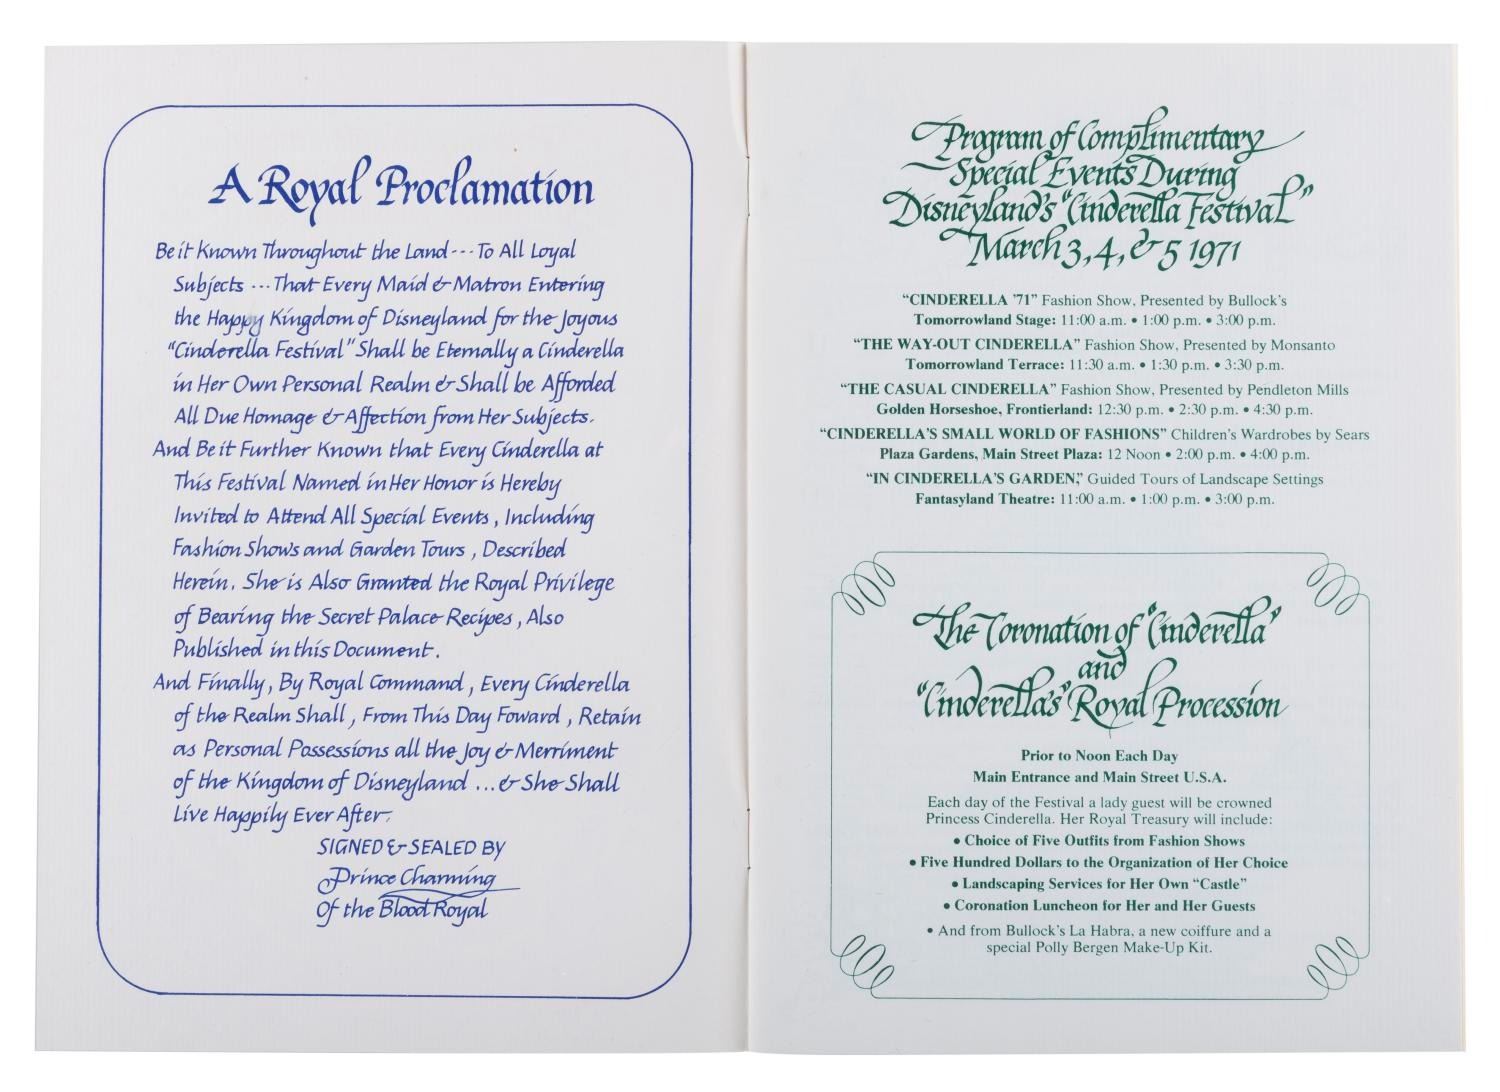 A Royal Proclamation
Be it Known Throughout the Land --- To All Loyal
Subjects --- That Every Maid & Matron Entering
the Happy Kingdom of Disneyland for the Joyous
"Cinderella Festival" Shall be Eternally a Cinderella
in Her Own Personal Realm & Shall be Afforded
All Due Homage & Affection from Her Subjects.
And Be it Further Known that Every Cinderella at
This Festival Named in Her Honor is Hereby
Invited to Attend All Special Events, Including
Fashion Shows and Garden Tours, Described
Herein. She is Also Granted the Royal Privilege
of Bearing the Secret Palace Recipes, Also
Published in this Document.
And Finally, By Royal Command, Every Cinderella
of the Realm Shall, From This Day Foward, Retain
as Personal Possessions all the Joy & Merriment
of the Kingdom of Disneyland ... & She Shall
Live Happily Ever After.
SIGNED & SEALED BY
Prince Charming
Of the Blood Royal
Program of Complimentary
Special Events During
Disneyland's "Cinderella Festival"
March 3, 4, & 5 1971
"CINDERELLA '71" Fashion Show, Presented by Bullock's
Tomorrowland Stage: 11:00 a.m. • 1:00 p.m. • 3:00 p.m.
"THE WAY-OUT CINDERELLA" Fashion Show, Presented by Monsanto
Tomorrowland Terrace: 11:30 a.m. • 1:30 p.m. • 3:30 p.m.
"THE CASUAL CINDERELLA" Fashion Show, Presented by Pendleton Mills
Golden Horseshoe, Frontierland: 12:30 p.m. • 2:30 p.m. • 4:30 p.m.
"CINDERELLA'S SMALL WORLD OF FASHIONS" Children's Wardrobes by Sears
Plaza Gardens, Main Street Plaza: 12 Noon • 2:00 p.m. • 4:00 p.m.
"IN CINDERELLA'S GARDEN," Guided Tours of Landscape Settings
Fantasyland Theatre: 11:00 a.m. • 1:00 p.m. • 3:00 p.m.
The Coronation of "Cinderella"
and
"Cinderella's" Royal Procession
Prior to Noon Each Day
Main Entrance and Main Street U.S.A.
Each day of the Festival a lady guest will be crowned
Princess Cinderella. Her Royal Treasury will include:
• Choice of Five Outfits from Fashion Shows
• Five Hundred Dollars to the Organization of Her Choice
• Landscaping Services for Her Own "Castle"
• Coronation Luncheon for Her and Her Guests
• And from Bullock's La Habra, a new coiffure and a
special Polly Bergen Make-Up Kit.